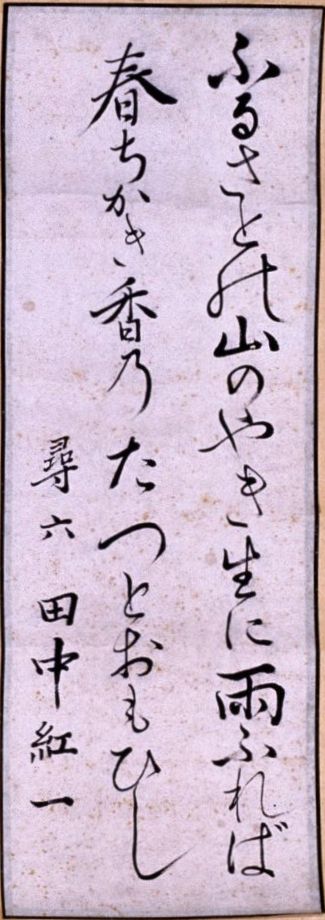 ふるさとの山のやき生に雨ふれば
春ちかき香乃たつとおもひし
尋六 田中紅一